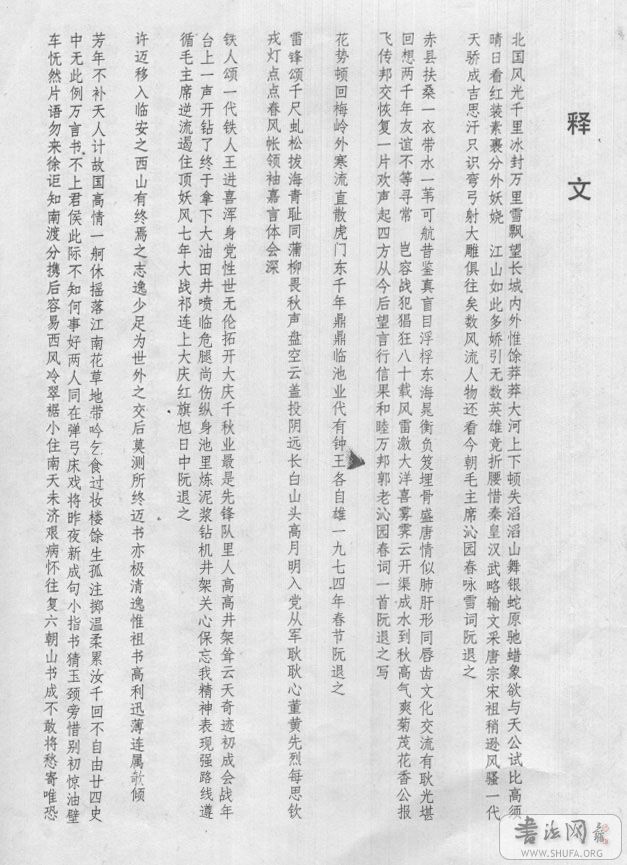 释文
北国风光千里冰封万里雪飘望长城内外惟馀莽莽大河上下顿失滔滔山舞银蛇原驰蜡象欲与天公试比高须
晴日看红装素裹分外妖娆 江山如此多娇引无数英雄竞折腰惜秦皇汉武略输文采唐宗宋祖稍逊风骚一代
天骄成吉思汗只识弯弓射大雕俱往矣数风流人物还看今朝毛主席沁园春咏雪词阮退之
赤县扶桑一衣带水一苇可航昔鉴真盲目浮桴东海晁衡负笈埋骨盛唐情似肺肝形同唇齿文化交流有耿光堪
回想两千年友谊不等寻常 岂容战犯猖狂八十载风雷激大洋喜雾霁云开渠成水到秋高气爽菊茂花香公报
飞传邦交恢复一片欢声起四方从今后望言行信果和睦万邦郭老沁园春词一首阮退之写
花势顿回梅岭外寒流直散虎门东千年鼎鼎临池业代有钟王各自雄一九七四年春节阮退之
雷锋颂千尺虬松拔海青耻同蒲柳畏秋声盘空云盖投阴远长白山头高月明入党从军耿耿心董黄先烈每思钦
戎灯点点春风帐领袖嘉言体会深
铁人颂一代铁人王进喜浑身党性世无伦拓开大庆千秋业最是先锋队里人高高井架耸云天奇迹初成会战年
台上一声开钻了终于拿下大油田井喷临危腿尚伤纵身池里炼泥浆钻机井架关心保忘我精神表现强路线遵
循毛主席逆流遏住顶妖风七年大战祁连上大庆红旗旭日中阮退之
许迈移入临安之西山有终焉之志逸少足为世外之交后莫测所终迈书亦极清逸惟祖书高利迅薄连属欹倾
芳年不补天人计故国高情一舸休摇落江南花草地带吟乞食过妆楼馀生孤注掷温柔累汝千回不自由廿四史
中无此例万言书不上君侯此际不知何事好两人同在弹弓床戏将昨夜新成句小指书猜玉颈旁惜别初惊油壁
车恍然片语勿来徐讵知南渡分携后容易西风冷翠裾小住南天未济艰病怀往复六朝山书成不敢将愁寄唯恐
书法网
WWW.SHUFA.ORG